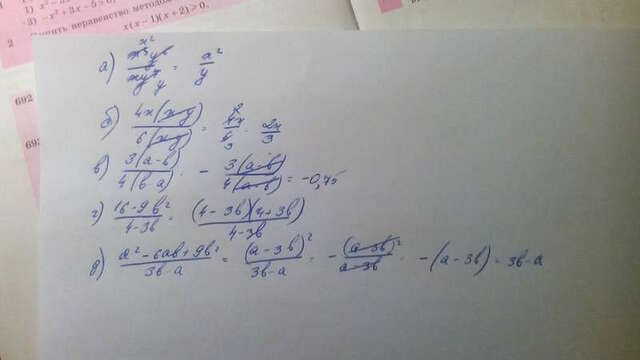 1) x² −
3) −x² + 3x − 5 > 0;
2 неравенство методом
x(x − 1)(x + 2) ≥ 0.
692
а) = x²/y
б) 4x(x−y)/6(x−y) = 4x/6 = 2x/3
в) 3(a−b)/4(b−a) = − 3(a−b)/4(a−b) = −0,75
г) 16−9b²/4−3b = (4−3b)(4+3b)/4−3b
д) a²−6ab+9b²/3b−a = (a−3b)²/3b−a = −(a−3b)²/a−3b = −(a−3b) = 3b−a